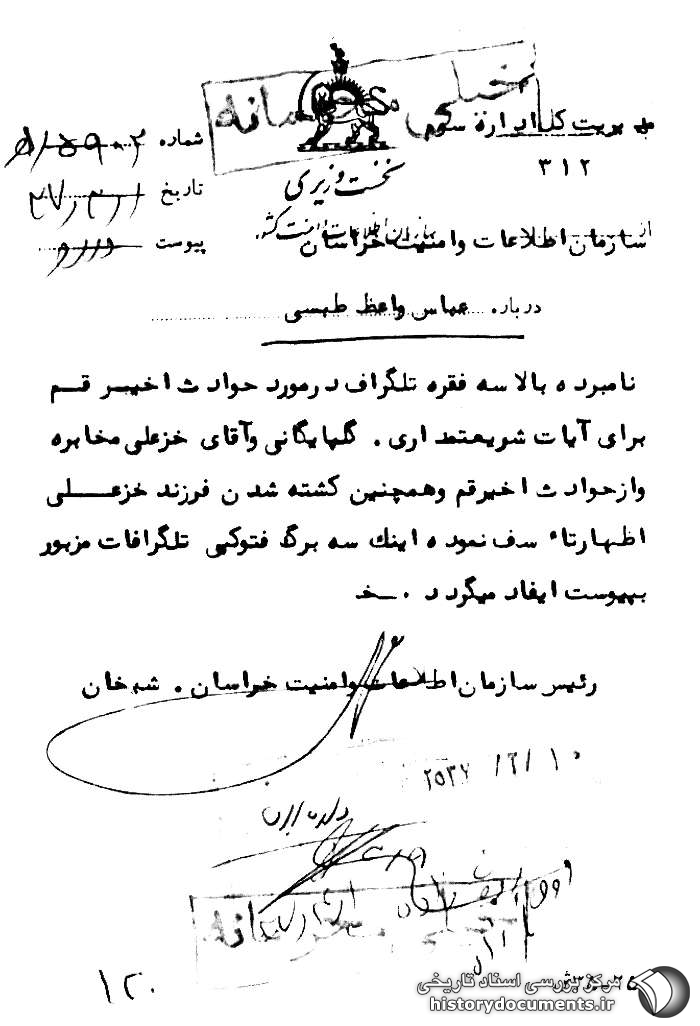 خیلی محرمانه
بمدیریت کل اداره سوم
۳۱۲
شماره
نخست وزیری
تاریخ
سازمان اطلاعات و امنیت کشور
از سازمان اطلاعات وامنیت خراسان
پیوست دارد
درباره عباس واعظ طبسی
نامبرده بالا سه فقره تلگراف درمورد حوادث اخیر قم
برای آیات شریعتمداری ، گلپایگانی وآقای خزعلی مخابره
وازحوادث اخیرقم وهمچنین کشته شدن فرزند خزعلی
اظهارتاء سف نموده اینك سه برگ فتوکپی تلگرافات مزبور
بپیوست ایفاد میگردد .خ
رئیس سازمان اطلاعات وامنیت خراسان . شیخان
۲۵۳۷/۲/۱۰
خیلی محرمانه
۱۲۰
مرکز بررسی اسناد تاریخی
historydocuments.ir